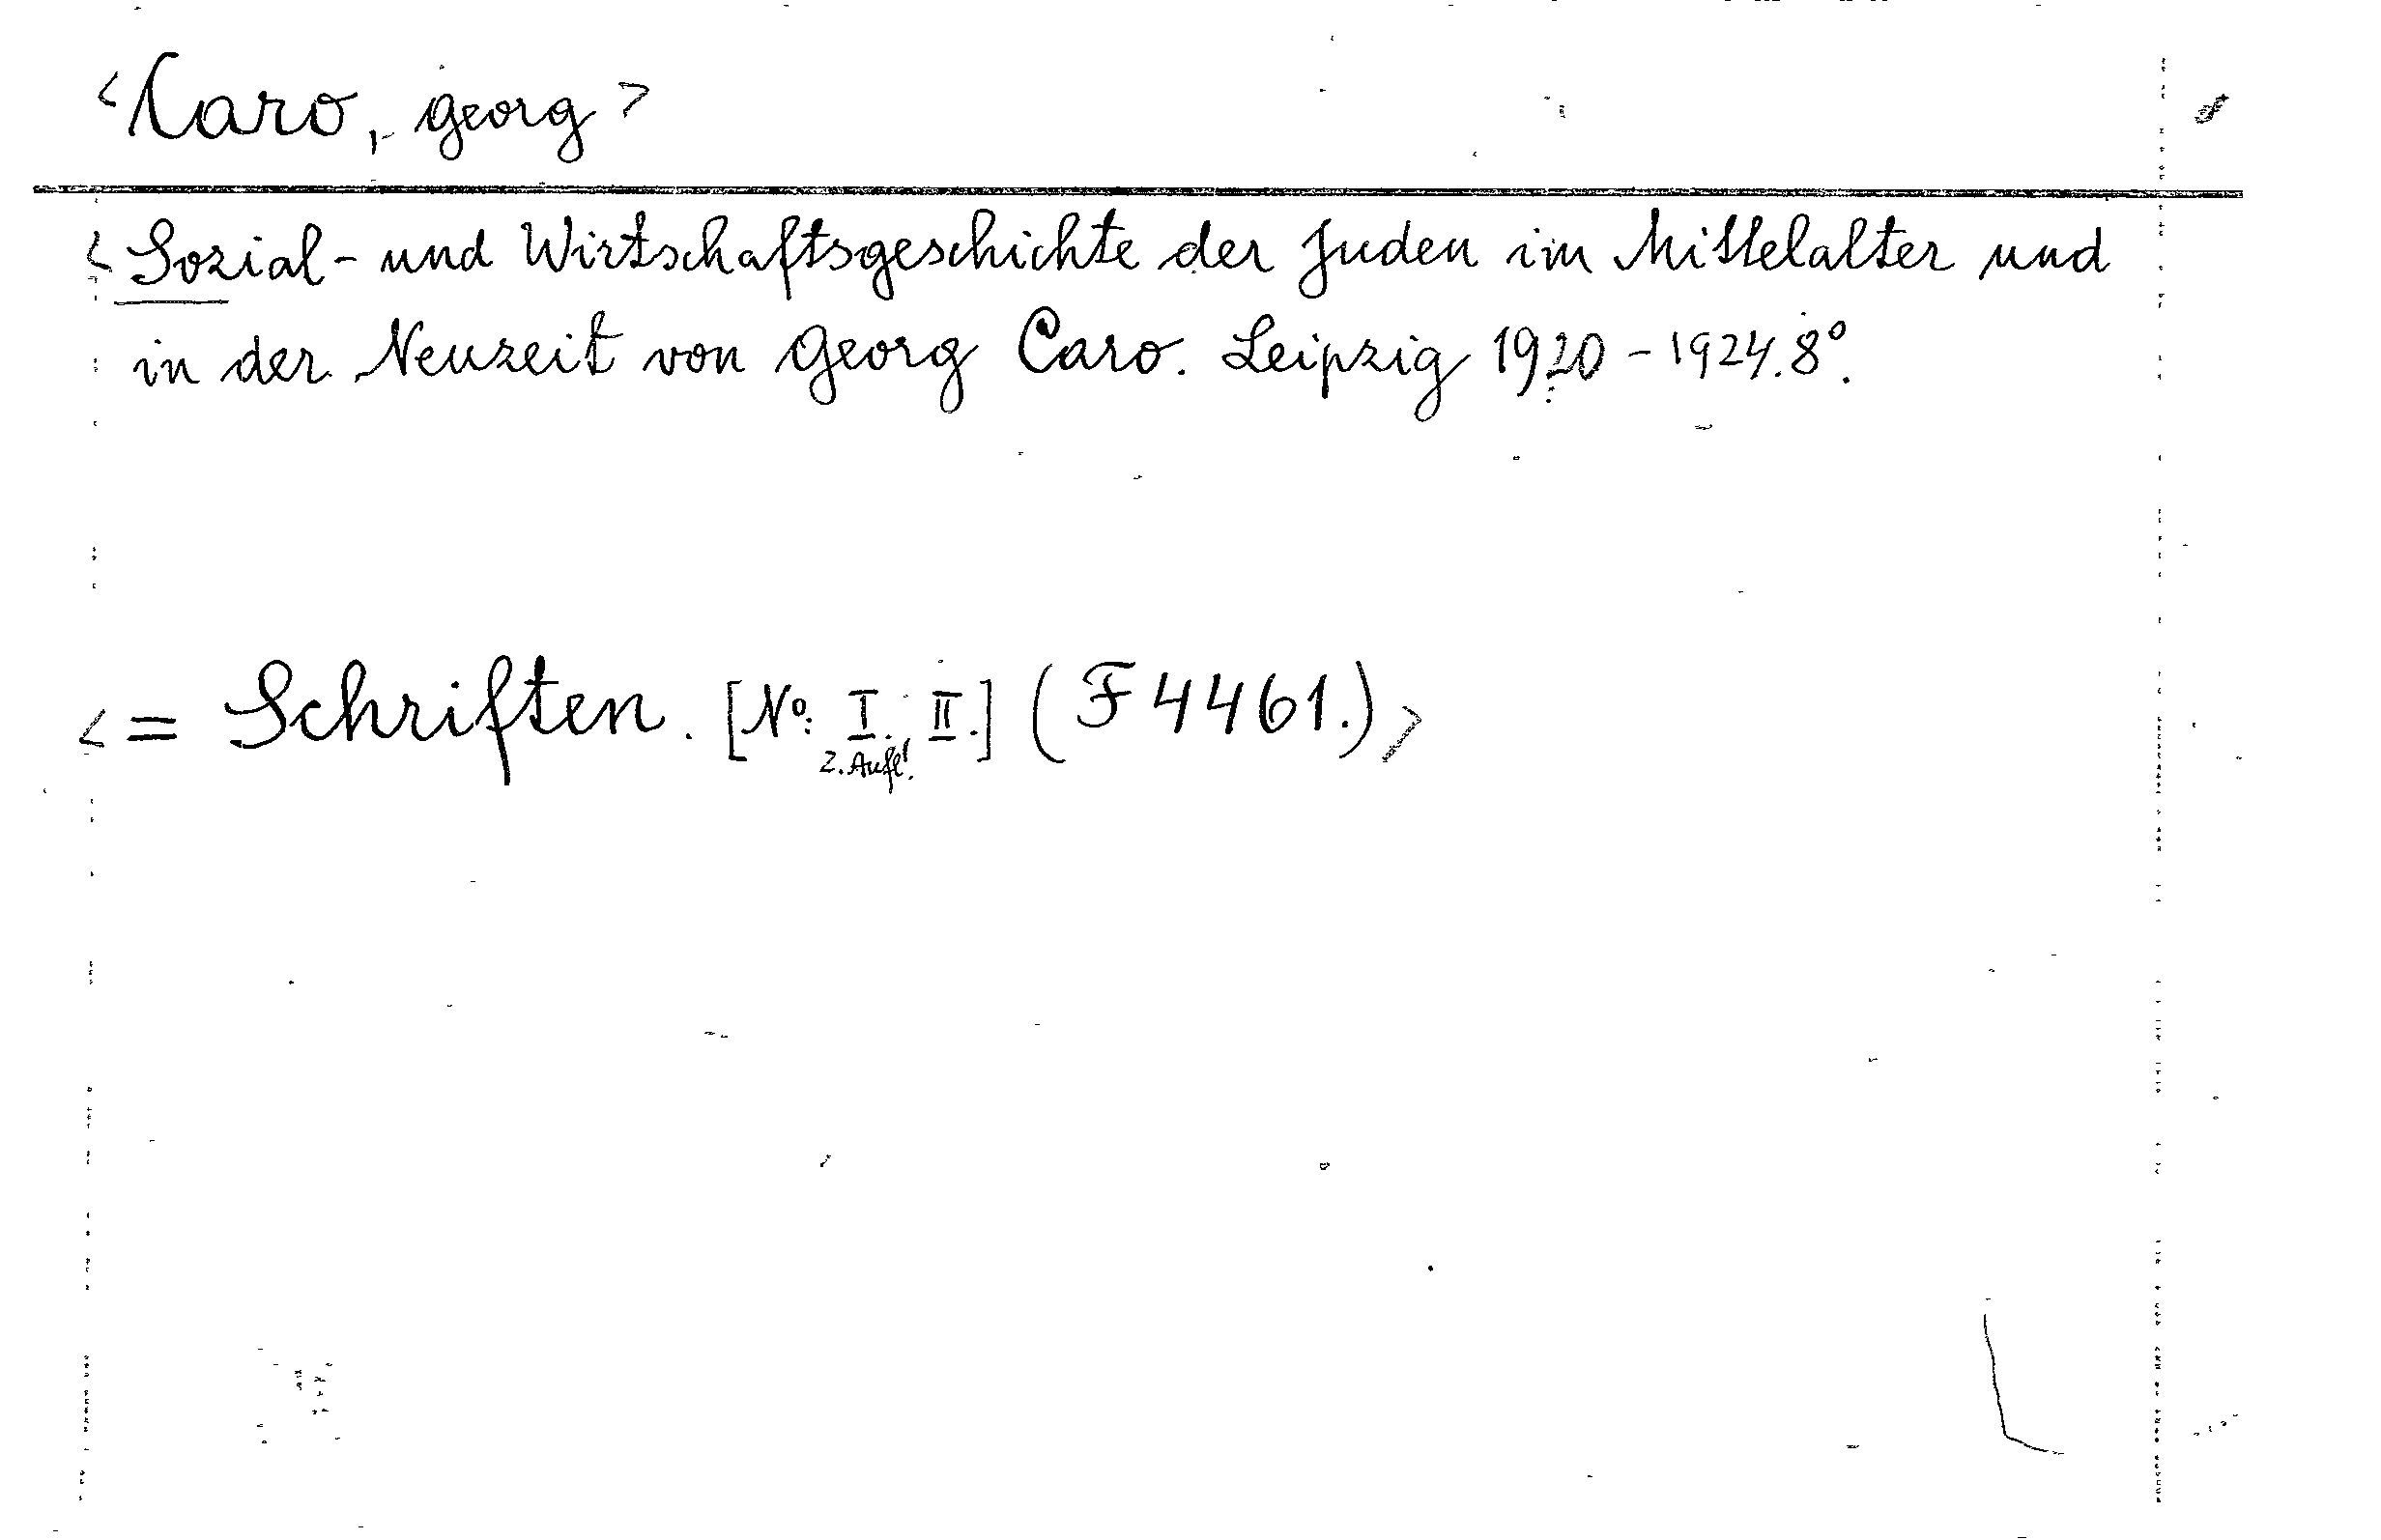 <Caro, Georg>
<Sozial- und Wirtschaftsgeschichte der Juden im Mittelalter und
in der Neuzeit von Georg Caro. Leipzig 1920-1924. 8°.
<= Schriften. [No: I. II.] (F 4461.)>
2. Aufl!